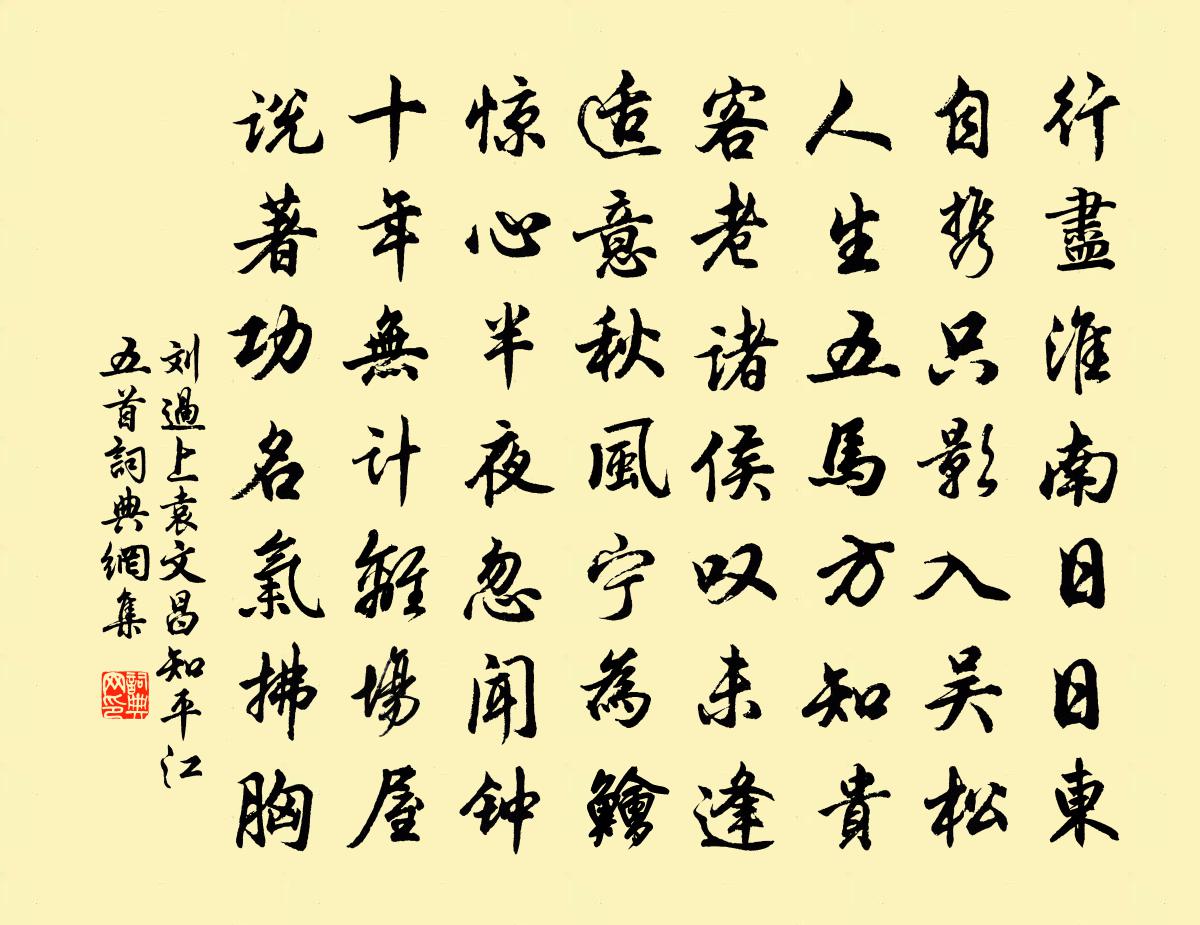 行盡淮南日日東
自携只影入吴松
人生五馬方知貴
客老诸侯叹未逢
适意秋風宁為鱠
惊心半夜忽闻钟
十年無计離場屋
说著功名氣拂胸
刘過上袁文昌知平江
五首詞典網集
詞典网印